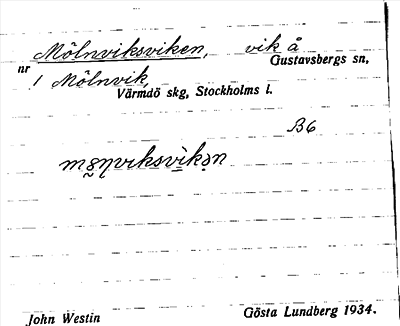 Mölnviksviken, vik å
Gustavsbergs sn,
nr 1 Mölnvik,
Värmdö skg, Stockholms l.
B6
John Westin
Gösta Lundberg 1934.